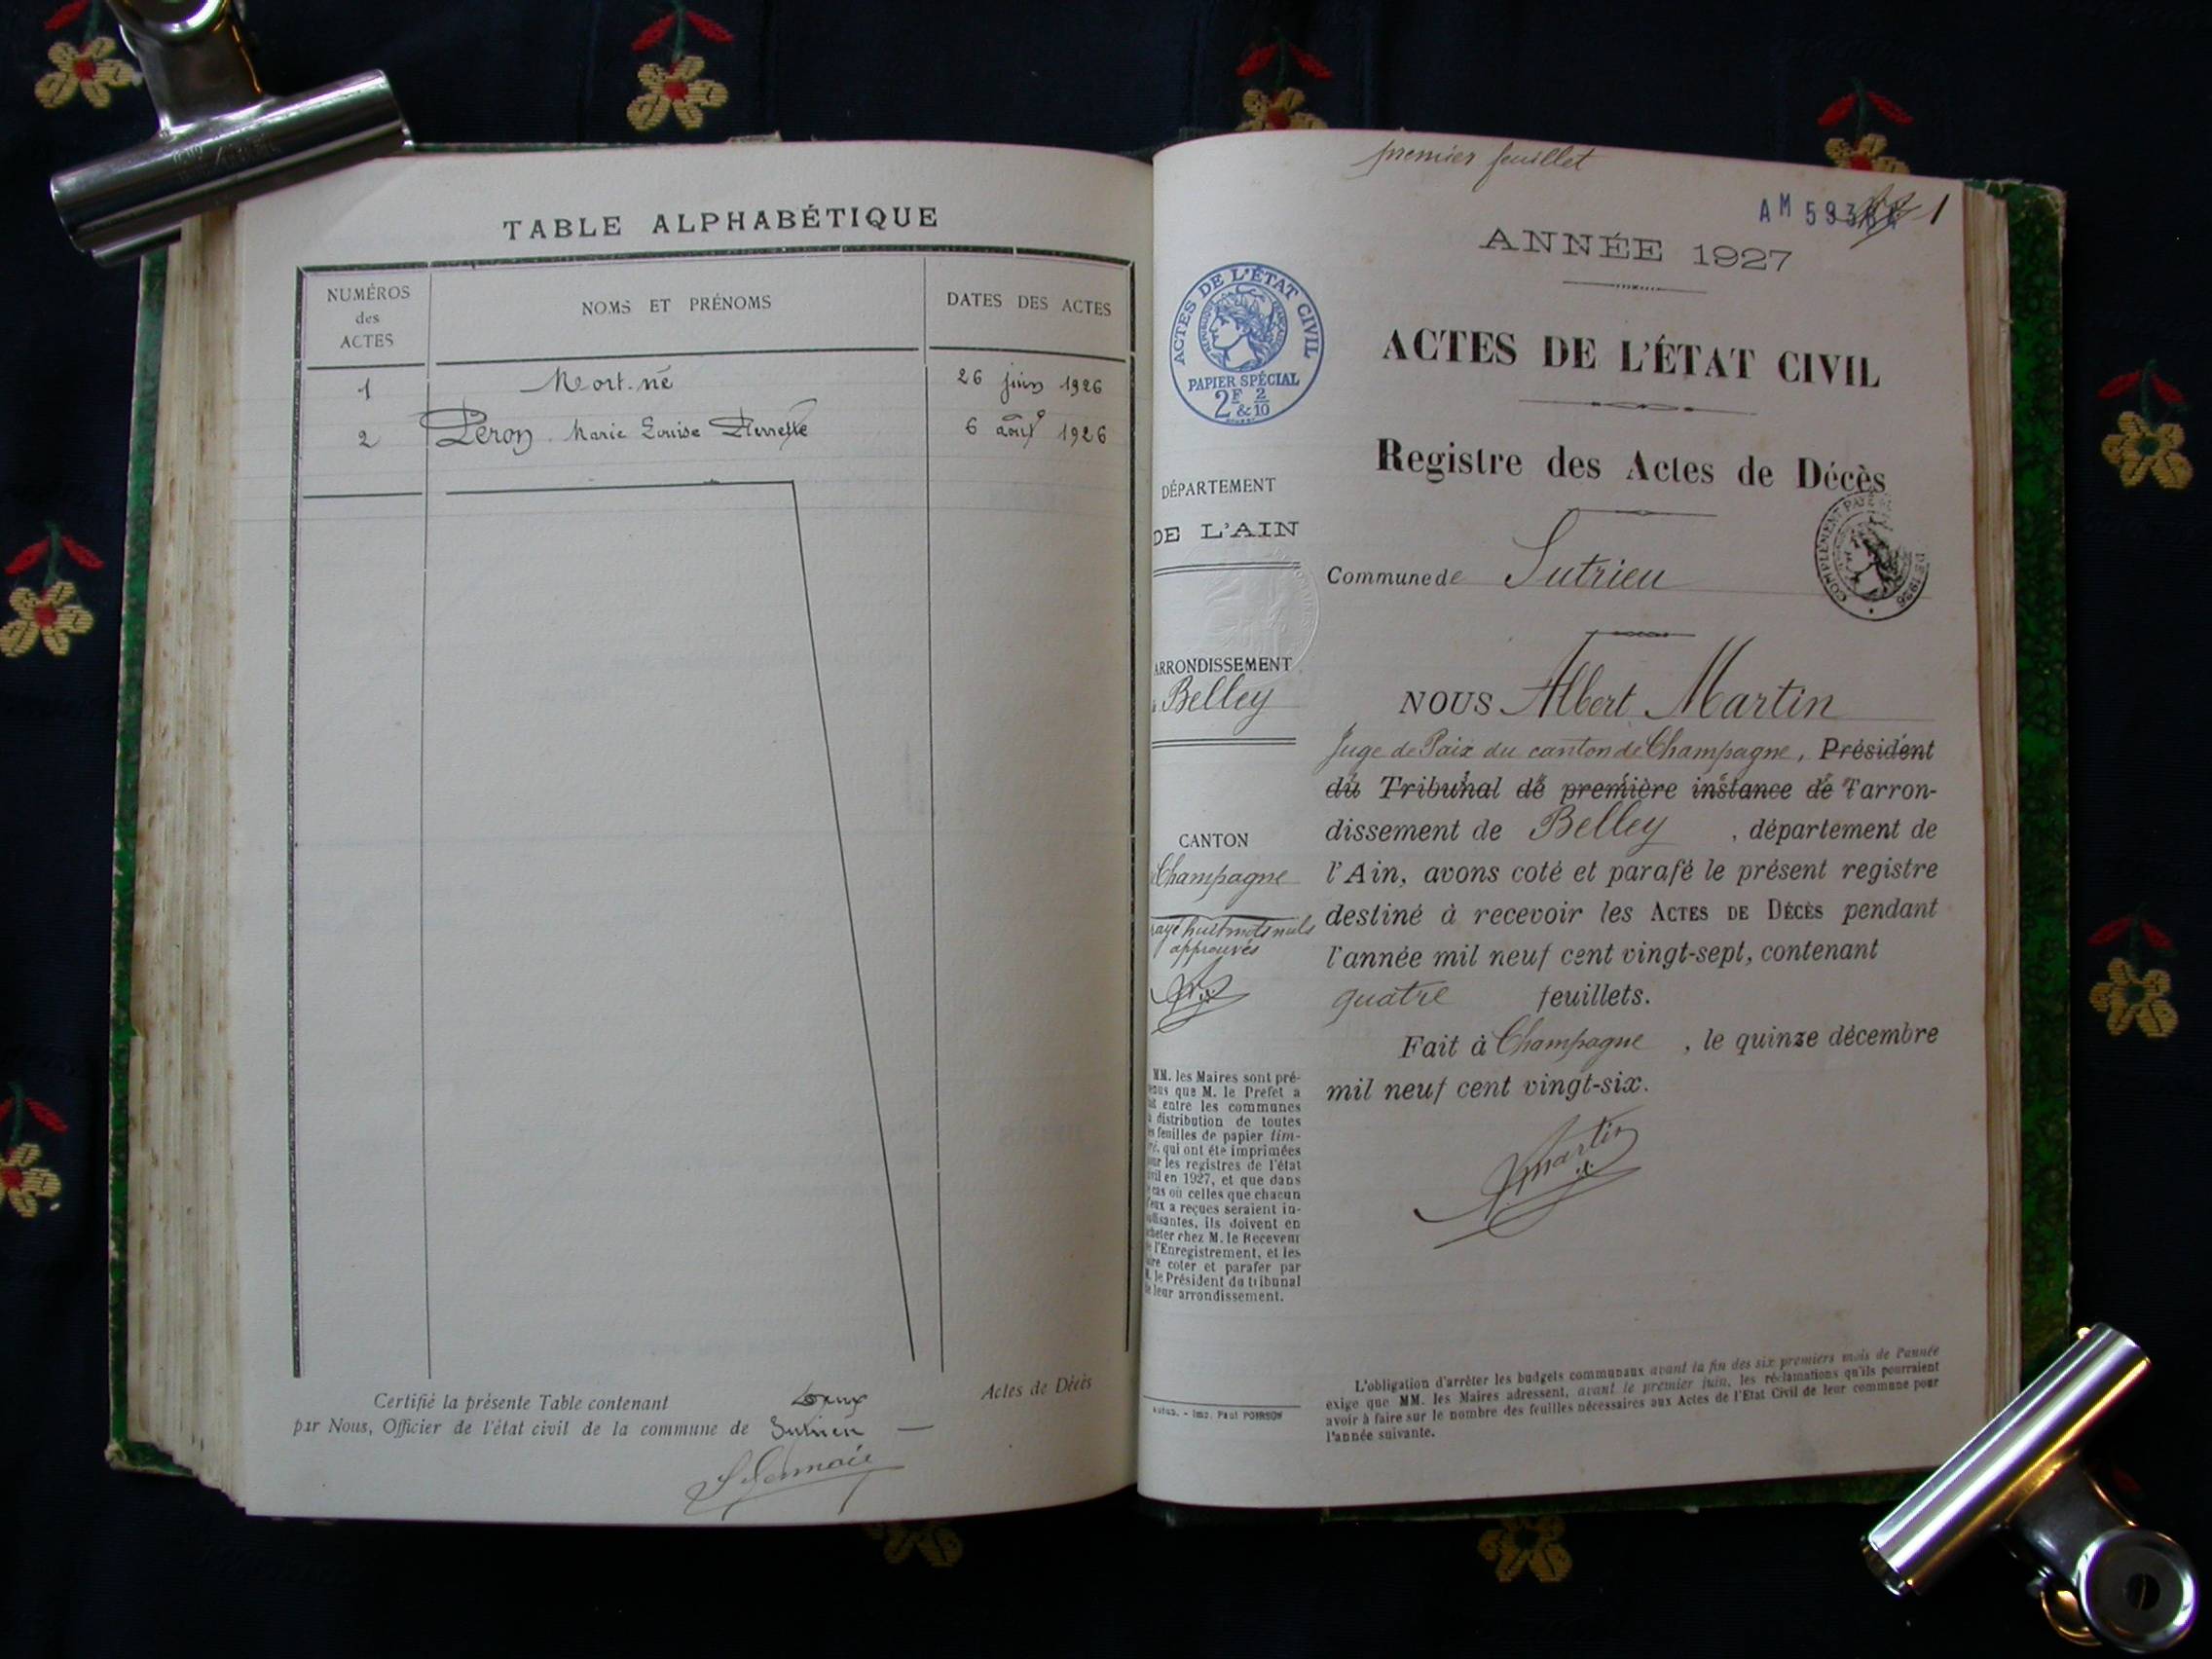 TABLE ALPHABÉTIQUE
NUMÉROS
des
ACTES
NOMS ET PRÉNOMS
DATES DES ACTES
1 Mort-né 26 juin 1926
2 Peron Marie Louise Pierrette 6 août 1926
Certifié la présente Table contenant deux Actes de Décès
par Nous, Officier de l'état civil de la commune de Sutrieu
premier feuillet
AM 593 1
ANNÉE 1927
ACTES DE L'ÉTAT CIVIL
RÉPUBLIQUE FRANÇAISE
PAPIER SPÉCIAL
2F & 2/10
ACTES DE L'ÉTAT CIVIL
Registre des Actes de Décès
COMPLÉMENT PAYÉ DE 1926
Commune de Sutrieu
DÉPARTEMENT
DE L'AIN
ARRONDISSEMENT
Belley
CANTON
Champagne
rayé huit mots nuls
approuvés
MM. les Maires sont pré-
venus que M. le Préfet a
fait entre les communes
la distribution de toutes
les feuilles de papier tim-
bré, qui ont été imprimées
pour les registres de l'état
civil en 1927, et que dans
le cas où celles que chacun
d'eux a reçues seraient in-
suffisantes, ils doivent en
acheter chez M. le Receveur
de l'Enregistrement, et les
faire coter et parafer par
M. le Président du tribunal
de leur arrondissement.
Autun. - Imp. Paul POIRSON
NOUS Albert Martin
Juge de Paix du canton de Champagne, Président
du Tribunal de première instance de l'arron-
dissement de Belley, département de
l'Ain, avons coté et parafé le présent registre
destiné à recevoir les ACTES DE DÉCÈS pendant
l'année mil neuf cent vingt-sept, contenant
quatre feuillets.
Fait à Champagne, le quinze décembre
mil neuf cent vingt-six.
Martin
L'obligation d'arrêter les budgets communaux avant la fin des six premiers mois de l'année
exige que MM. les Maires adressent, avant le premier juin, les réclamations qu'ils pourraient
avoir à faire sur le nombre des feuilles nécessaires aux Actes de l'Etat Civil de leur commune pour
l'année suivante.